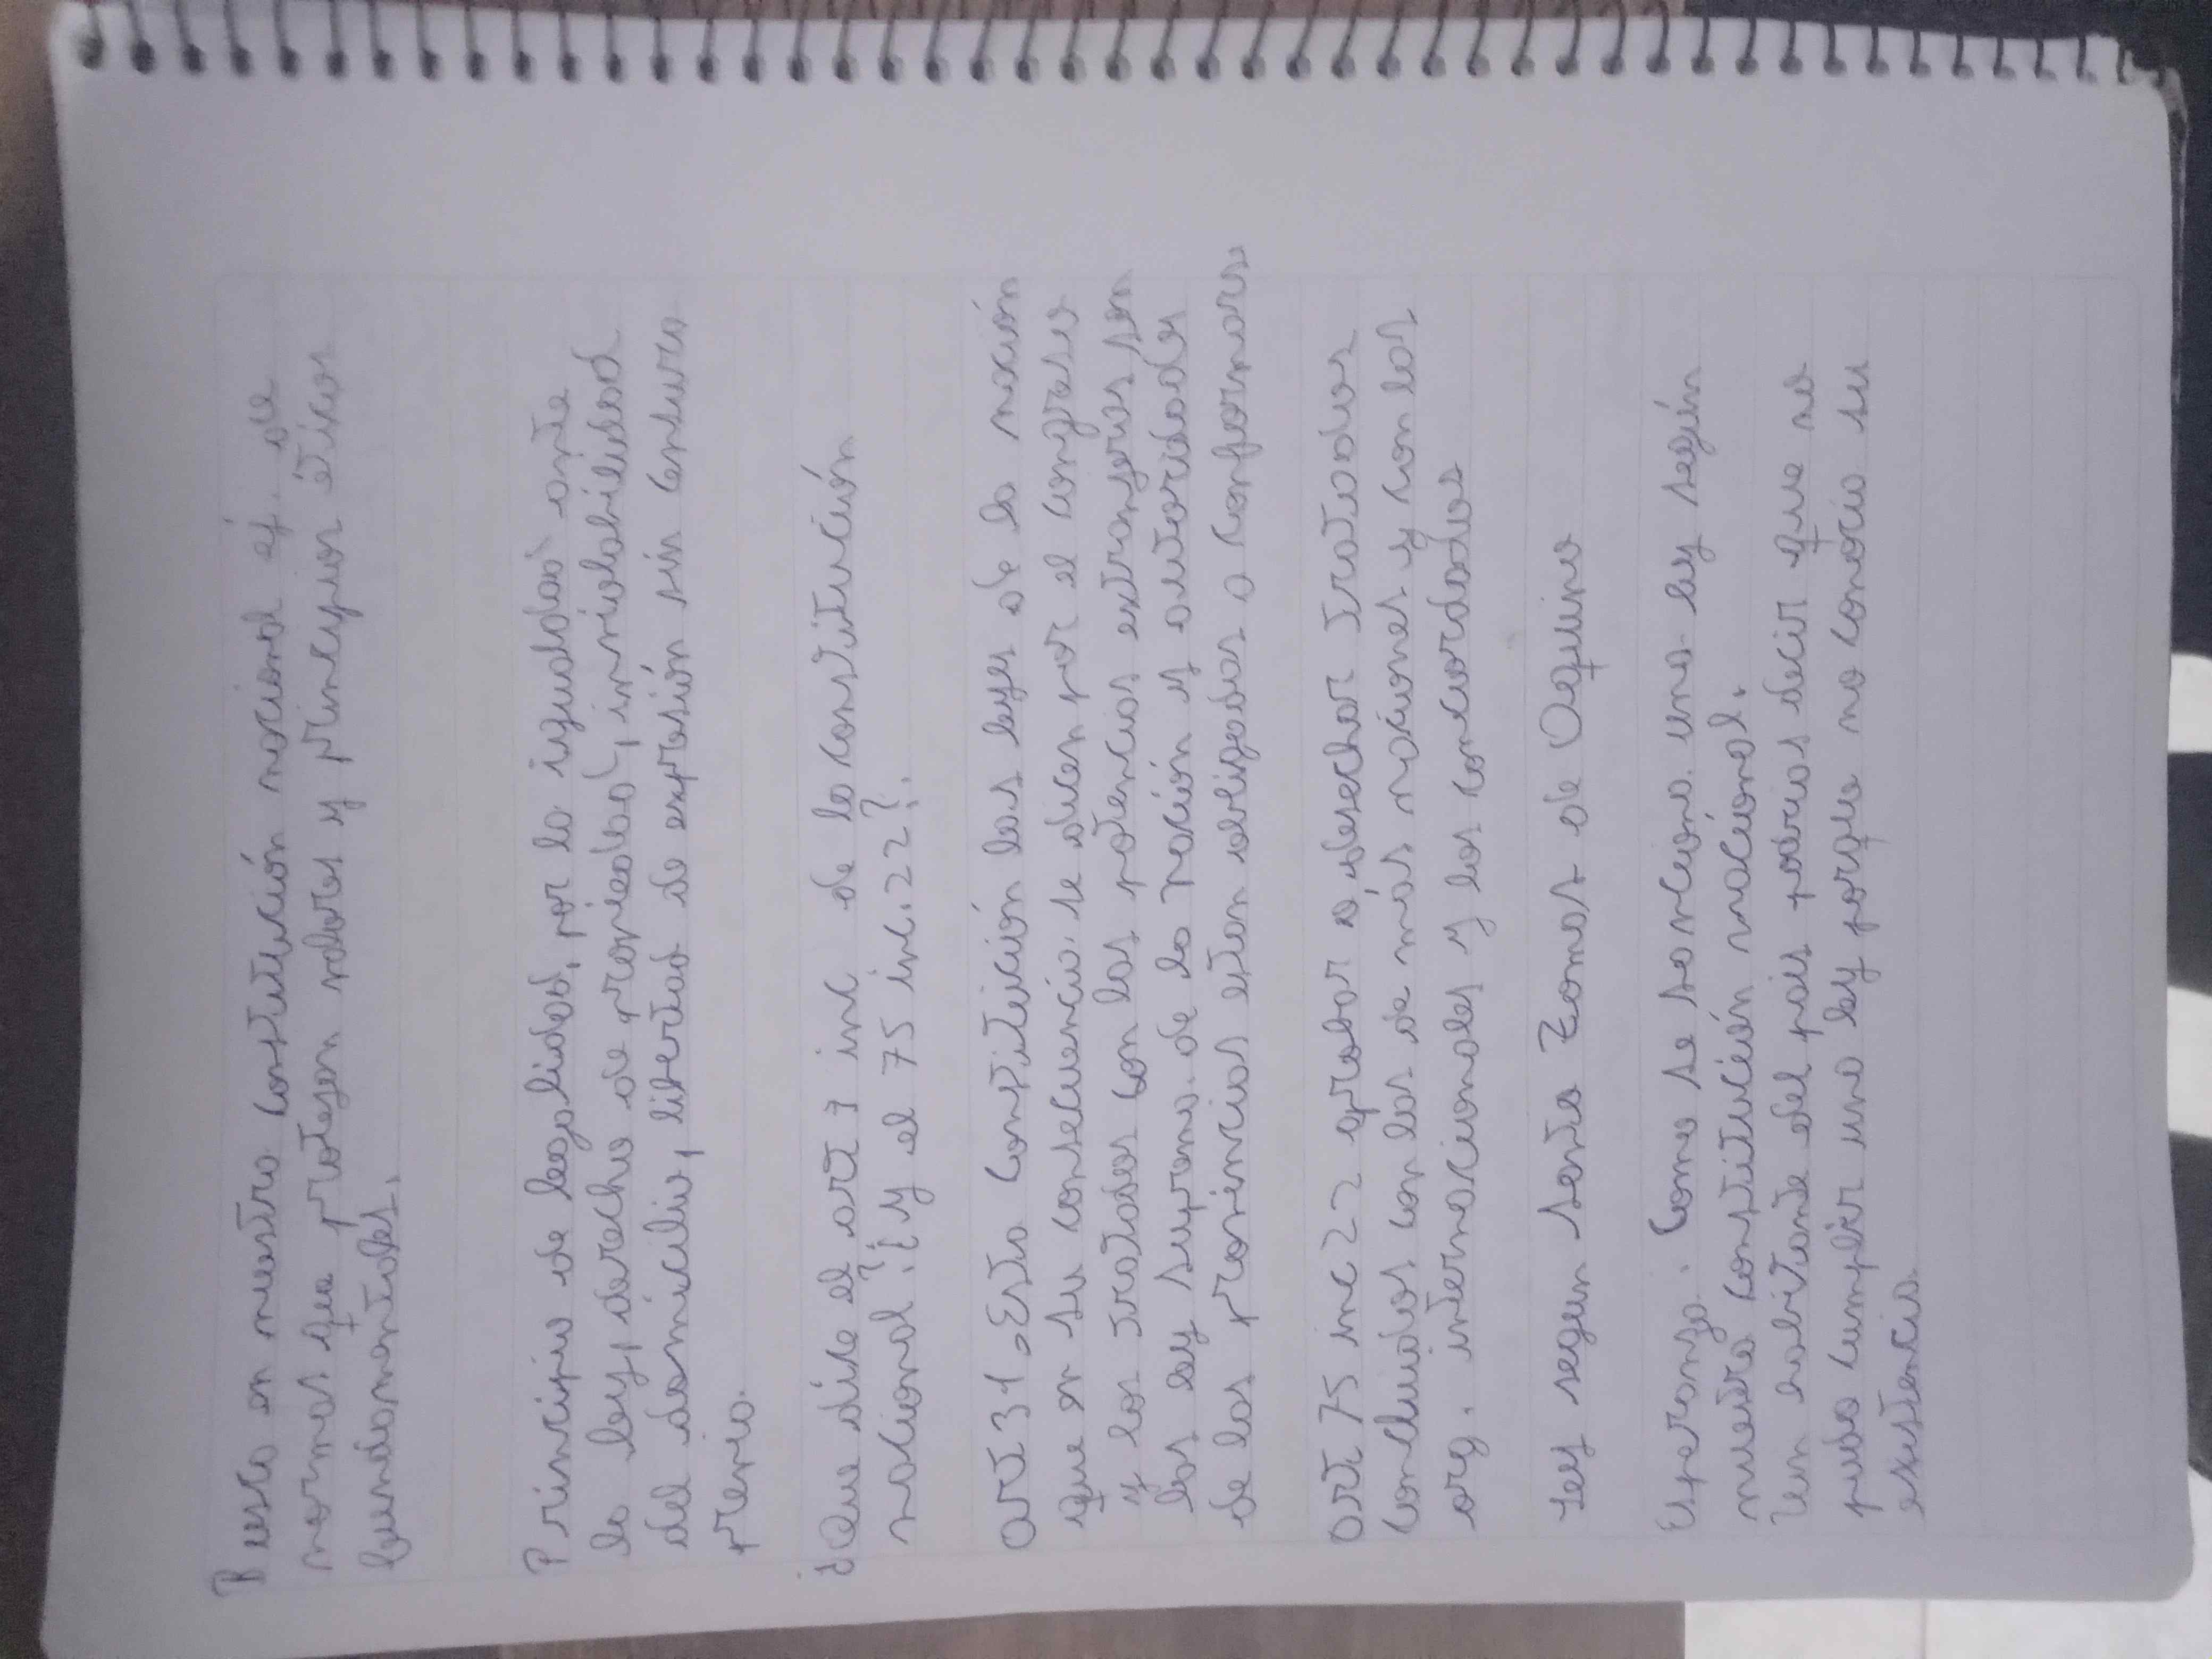 Busco en nuestra constitución nacional ej. de
normas que protegen valores y principios éticos
fundamentales.
Principio de legalidad, por la igualdad ante
la ley, derecho de propiedad, inviolabilidad
del domicilio, libertad de expresión sin censura
previa.
¿Que dice el art 31 inc de la constitución
nacional? ¿y el 75 inc. 22?.
art 31 Esta constitución las leyes de la nación
que en su consecuencia se dicen por el congreso
y los tratados con las potencias extranjeras son
las ley suprema de la nación y autoridades
de las provincias estan obligadas a conformars
art 75 inc 22 aprobar o desechar tratados
concluidos con las de más naciones y con las
org. internacionales y los concordados
Ley segun Santo Tomas de Aquino
Esperanza. Como se sanciona una ley según
nuestra constitución nacional.
Un habitante del pais podrias decir que no
pudo cumplir una ley porque no conocia su
existencia